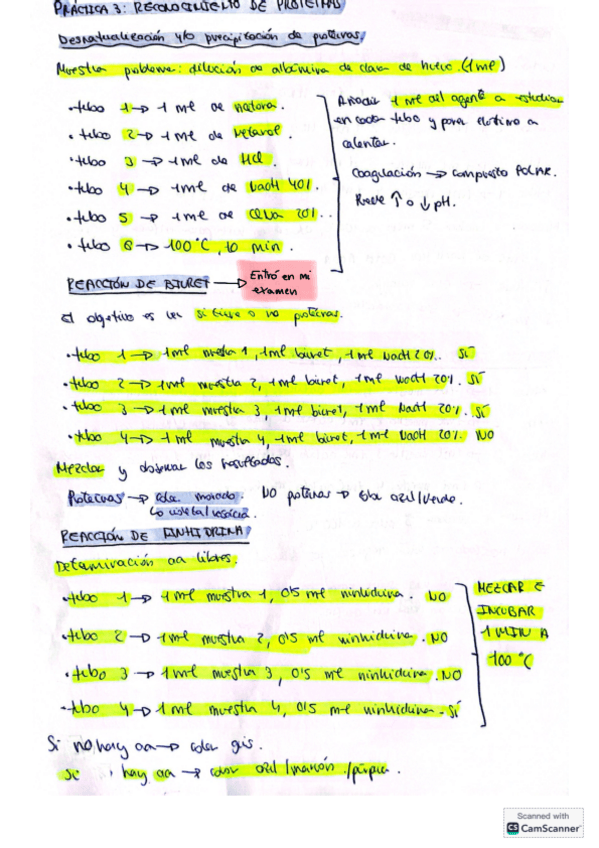 PRÁCTICA 3: RECONOCIMIENTO DE PROTEÍNAS
Desnaturalización y/o precipitación de proteínas.
Muestra problema: dilución de albúmina de clara de huevo. (1 ml)
• tubo 1 → 1 ml de
• tubo 2 → 1 ml de Metanol.
• tubo 3 → 1 ml de HCl.
• tubo 4 → 1 ml de NaOH 40%.
• tubo 5 → 1 ml de ClNa 20%.
• tubo 6 → 100°C, 10 min.
Añadir 1 ml del agente a estudiar
en cada tubo y poner el último a
calentar.
Coagulación → compuesto POLAR.
↑ o ↓ pH.
REACCIÓN DE BIURET → Entró en mi
examen
El objetivo es ver si tiene o no proteínas.
• tubo 1 → 1 ml muestra 1, 1 ml biuret, 1 ml NaOH 20%. SÍ
• tubo 2 → 1 ml muestra 2, 1 ml biuret, 1 ml NaOH 20%. SÍ
• tubo 3 → 1 ml muestra 3, 1 ml biuret, 1 ml NaOH 20%. SÍ
• tubo 4 → 1 ml muestra 4, 1 ml biuret, 1 ml NaOH 20%. NO
Mezclar y observar los resultados.
Proteínas → color morado. NO proteínas → color azul/verde.
↳ violeta/
REACCIÓN DE NINHIDRINA
Determinación aa libres.
• tubo 1 → 1 ml muestra 1, 0'5 ml ninhidrina. NO
• tubo 2 → 1 ml muestra 2, 0'5 ml ninhidrina. NO
• tubo 3 → 1 ml muestra 3, 0'5 ml ninhidrina. NO
• tubo 4 → 1 ml muestra 4, 0'5 ml ninhidrina. SÍ
MEZCLAR E
INCUBAR
1 MIN A
100°C
Si no hay aa → color gris.
Si hay aa → color azul/marrón/púrpura.
Scanned with
CS CamScanner